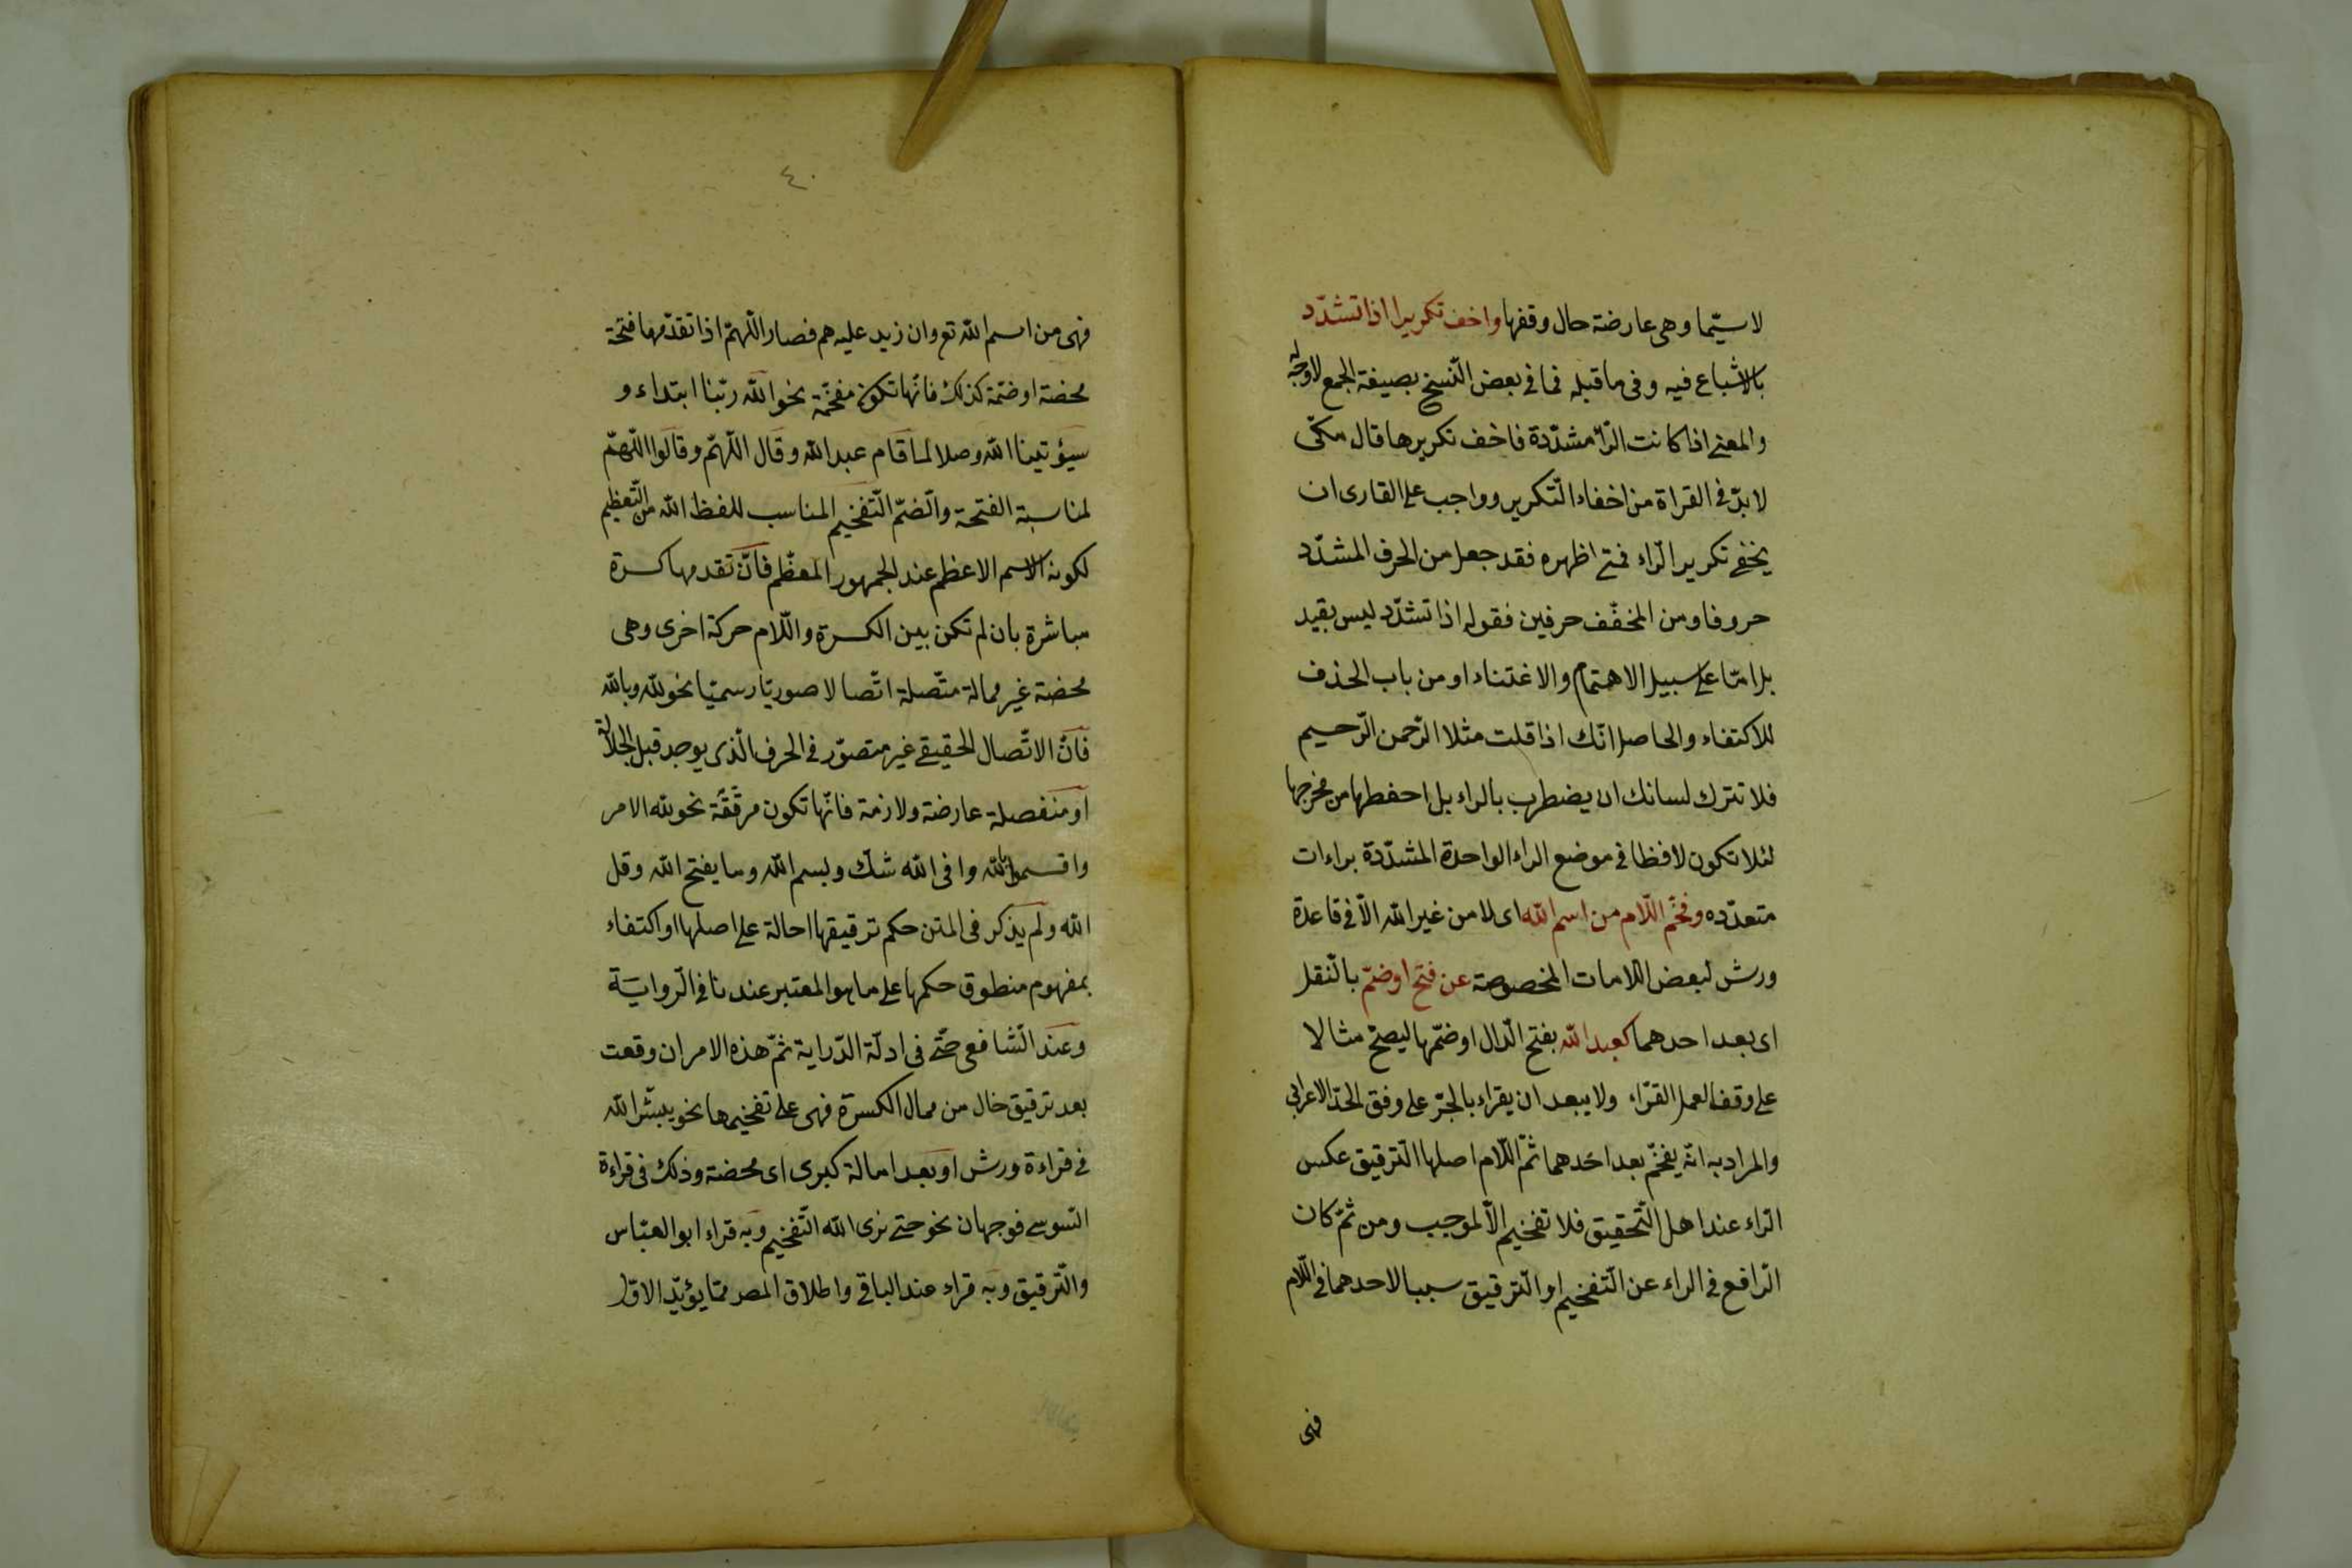 لا سيّما وهى عارضة حال وقفها واخف تكريرا اذا تشدّد
بالاشباع فيه وفى ما قبله فما فى بعض النّسخ بصيغة الجمع لا وجه له
والمعنى اذا كانت الرّاء مشدّدة فاخف تكريرها قال مكّى
لا بدّ فى القراة من اخفاء التّكرير وواجب على القارى ان
يخفى تكرير الرّاء فمتى اظهره فقد جعل من الحرف المشدّد
حروفا ومن المخفّف حرفين فقوله اذا تشدّد ليس بقيد
بل امّا على سبيل الاهتمام والاغتناء او من باب الحذف
للاكتفاء والحاصل انّك اذا قلت مثلا الرّحمن الرّحيم
فلا تترك لسانك ان يضطرب بالراء بل احفظها من مخرجها
لئلا تكون لافظا فى موضع الراء الواحدة المشدّدة براءات
متعدّده وفخّم اللّام من اسم الله اى لا من غير الله الاّ فى قاعدة
ورش لبعض اللامات المخصوصة عن فتح او ضمّ بالنّقل
اى بعد احدهما كعبد الله بفتح الدّال او ضمّها ليصحّ مثالا
على وقف العمل القرّاء ولا يبعد ان يقراء بالجرّ على وفق الحدّ الاعرابى
والمراد به انّه يفخّم بعد احدهما ثمّ اللّام اصلها التّرقيق عكس
الرّاء عند اهل التّحقيق فلا تفخيم الاّ لموجب ومن ثمّ كان
الرّافع فى الراء عن التّفخيم او التّرقيق سببا لاحدهما فى اللّام
فهى
٤٠
فهى من اسم الله تع وان زيد عليه هم فصار اللّهمّ اذا تقدّمها فتحة
محضة او ضمّة كذلك فانّها تكون مفخّمة نحو الله ربّنا ابتداء و
سيؤتينا الله وصلا لما قام عبد الله وقال اللّهمّ وقالوا اللّهمّ
لمناسبة الفتحة والضّمّ التّفخيم المناسب للفظ الله من التّعظيم
لكونه الاسم الاعظم عند الجمهور المعظّم فانّ تقدمها كسرة
مباشرة بان لم تكن بين الكسرة واللّام حركة اخرى وهى
محضة غير ممالة متّصلة اتّصالا صوريّا رسميّا نحو لله وبالله
فانّ الاتّصال الحقيقى غير متصوّر فى الحرف الّذى يوجد قبل الجلالة
او منفصلة عارضة ولازمة فانّها تكون مرقّقة نحو لله الامر
واقسموا بالله وافى الله شكّ وبسم الله وما يفتح الله وقل
الله ولم يذكر فى المتن حكم ترقيقها احالة على اصلها او اكتفاء
بمفهوم منطوق حكمها على ما هو المعتبر عندنا فى الرّواية
وعند الشّافعى حتّى فى ادلّة الدّراية ثمّ هذه الامر ان وقعت
بعد ترقيق خال من ممال الكسرة فهى على تفخيمها نحو يبشّر الله
فى قراءة ورش او بعد امالة كبرى اى محضة وذلك فى قراءة
السّوسى فوجهان نحو حتى نرى الله التّفخيم وبه قراء ابو العبّاس
والتّرقيق وبه قراء عند الباقى واطلاق المصر ممّا يؤيّد الاوّل